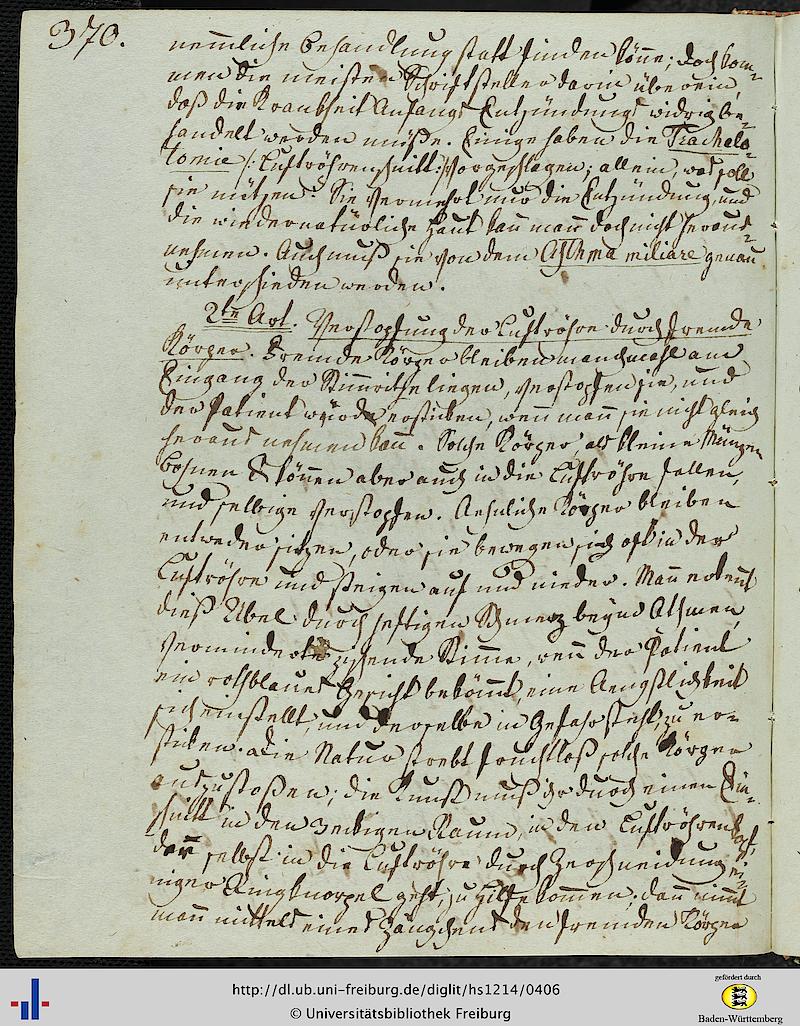 370.
nemmliche Behandlung statt finden könne; doch kom-
men die meisten Schriftsteller darin überein,
daß die Krankheit Anfangs Entzündungs widrig be-
handelt werden müße. Einige haben die Trachelo-
tomie /: Luftröhrenschnitt :/ vorgeschlagen; allein, was soll
sie nützen? Sie vermehrt nur die Entzündung, und
die wiedernatürliche Haut kann mann doch nicht heraus-
nehmen. Auch muß sie von dem Asthma miliare genau
unterschieden werden.
2te Art. Verstopfung der Luftröhre durch fremde
Körper. Fremde Körper bleiben manchmahl am
Eingang der Stimmritze liegen, verstopfen sie, und
der Patient würde ersticken, wenn mann sie nicht gleich
heraus nehmen kann. Solche Körper, als kleine Münzen
Bohnen & können aber auch in die Luftröhre fallen,
und selbige verstopfen. Aehnliche Körper bleiben
entweder sizen, oder sie bewegen sich oft in der
Luftröhre und steigen auf und nieder. Mann erkennt
dieß Übel durch heftigen Schmerz beym Athmen,
verminderte zischende Stimme, wenn der Patient
ein rothblaues Gesicht bekömmt, eine Aengstlichkeit
sich einstellt, und derselbe in Gefahr steht, zu er-
sticken. Die Natur strebt fruchtloß solche Körper
auszustoßen; die Kunst muß ihr durch einen Ein-
schnitt in den 3eckigen Raum, in den Luftröhrenkopf,
der selbst in die Luftröhre durch Zerschneidung ei-
niger Ringknorpel geht, zu Hilfe kommen; dann nimmt
mann mittels eines Zängchens den fremden Körper
http://dl.ub.uni-freiburg.de/diglit/hs1214/0406
© Universitätsbibliothek Freiburg
gefördert durch
Baden-Württemberg